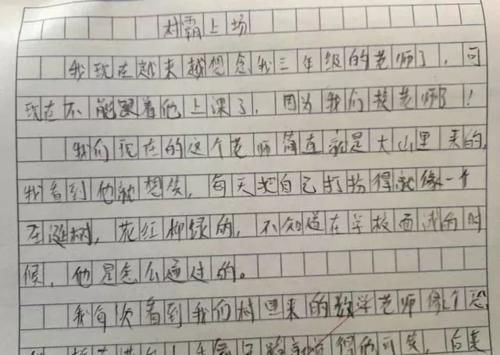 村霸上场
我现在越来越想念我三年级的老师了，可
现在不能跟着他上课了，因为我们换老师了！
我们现在的这个老师简直就是大山里来的，
我看到他就想笑，每天把自己打扮得就像一个
圣诞树，花红柳绿的，不知道在学校面试的时
候，他是怎么通过的。
我每次看到我们村里来的数学老师像个恐